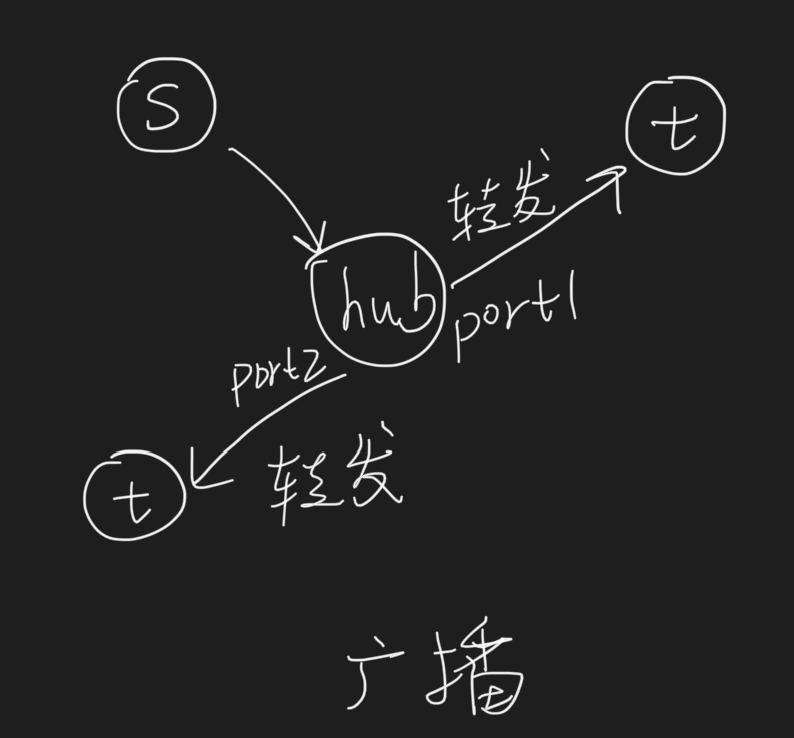 S
t
转发
hub
port1
port2
t
转发
广播